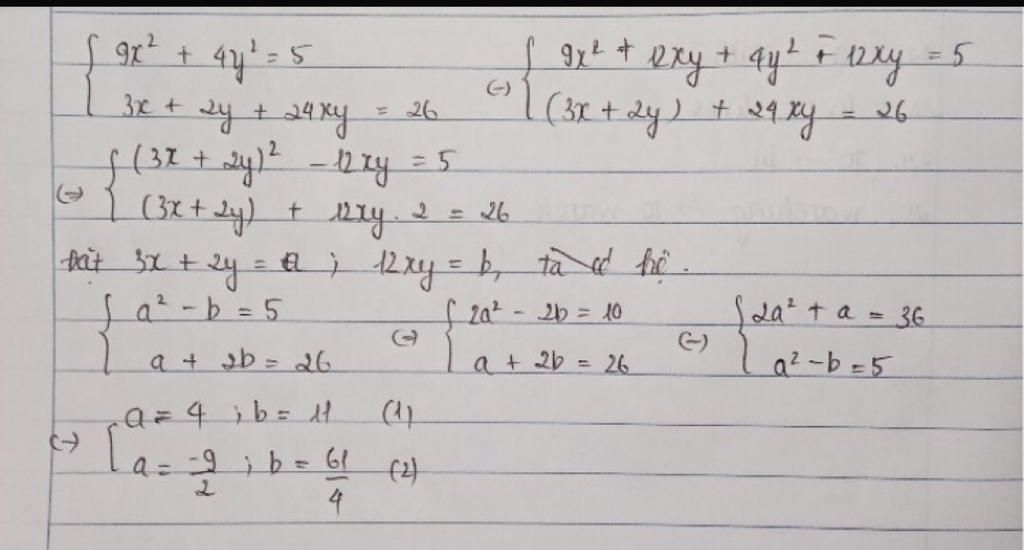 { 9x² + 4y² = 5 { 9x² + 12xy + 4y² - 12xy = 5
3x + 2y + 24xy = 26 (=) (3x + 2y) + 24xy = 26
{ (3x + 2y)² - 12xy = 5
(=) (3x + 2y) + 12xy . 2 = 26
Đặt 3x + 2y = a ; 12xy = b, ta có hệ .
{ a² - b = 5 { 2a² - 2b = 10 { 2a² + a = 36
a + 2b = 26 (=) a + 2b = 26 (=) a² - b = 5
a = 4 ; b = 11 (1)
(=) [ a = -9/2 ; b = 61/4 (2)